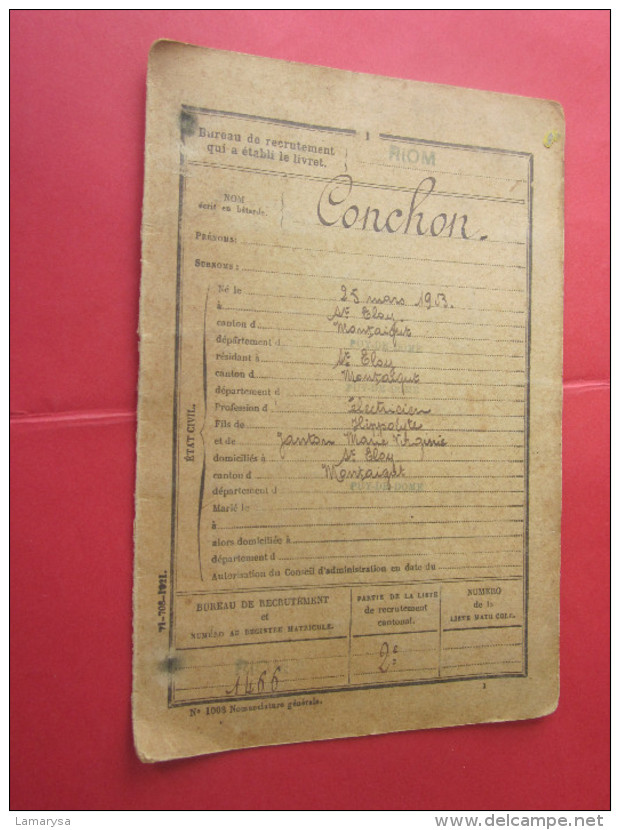 1
Bureau de recrutement
qui a établi le livret.
RIOM
NOM
écrit en bâtarde.
Conchon.
PRÉNOMS:
SURNOMS:
ÉTAT CIVIL.
Né le 25 mars 1903.
à St Eloy.
canton d Montaigut
département d PUY-DE-DOME
résidant à St Eloy
canton d Montaigut
département d PUY-DE-DOME
Profession d Electricien
Fils de Hippolyte
et de Janton Marie Virginie
domiciliés à St Eloy
canton d Montaigut
département d PUY-DE-DOME
Marié le
à
alors domiciliée à
département d
Autorisation du Conseil d'administration en date du
BUREAU DE RECRUTEMENT
et
NUMÉRO AU REGISTRE MATRICULE.
PARTIE DE LA LISTE
de recrutement
cantonal.
NUMÉRO
de la
LISTE MATRICULE.
RIOM
1466
2e
71-708-1921.
No 1008 Nomenclature générale.
1
Lamarysa
www.delcampe.net